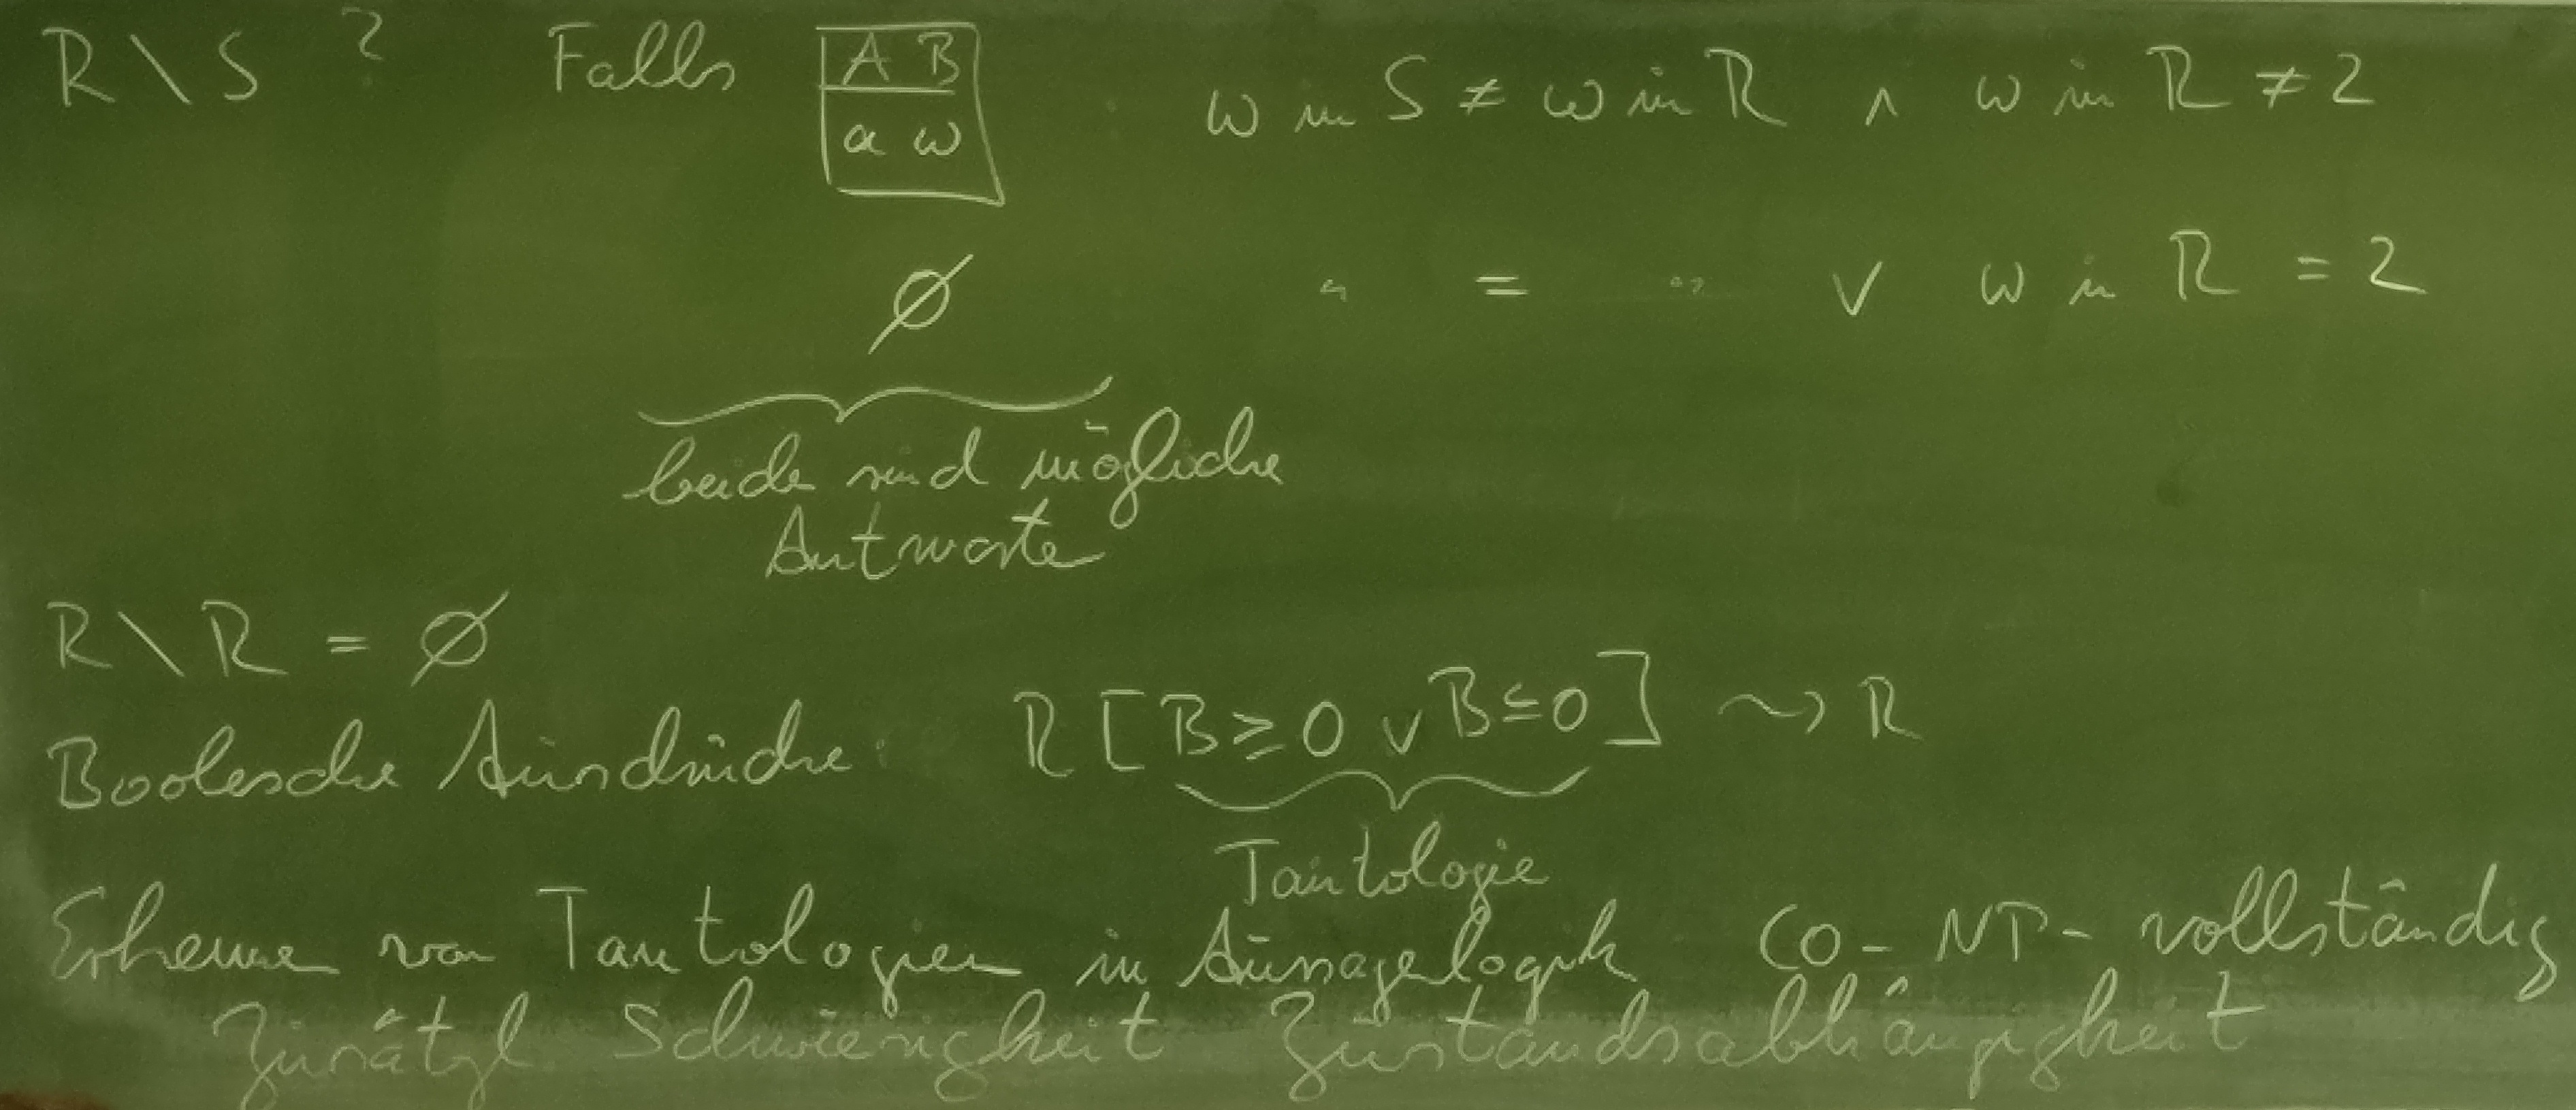 R \ S ? Falls A B ω in S ≠ ω in R ∧ ω in R ≠ 2
a ω
∅ " = " ∨ ω in R = 2
beide sind mögliche
Antworte
R \ R = ∅
Boolesche Ausdrücke: R [ B ≥ 0 ∨ B ≤ 0 ] ⤳ R
Tautologie
Erkennen von Tautologien in Aussagelogik CO-NP-vollständig
Zusätzl Schwierigkeit Zustandsabhängigkeit